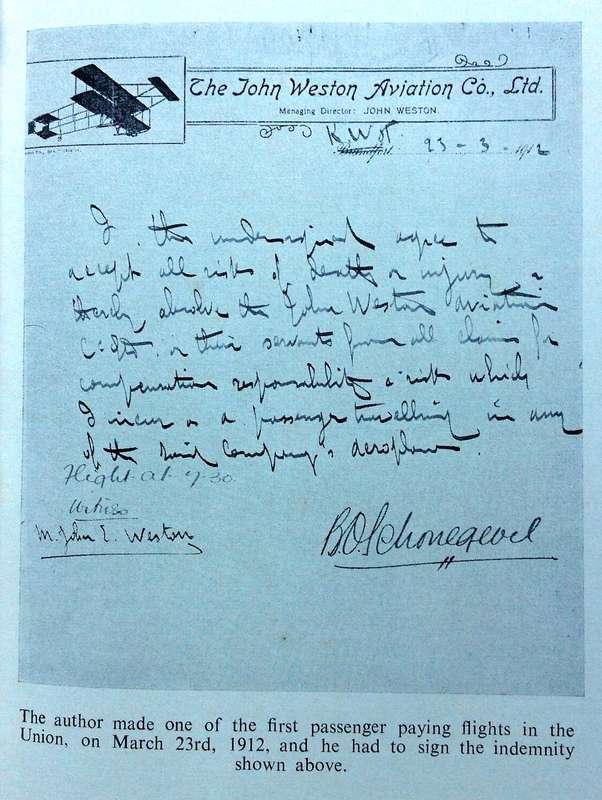 The John Weston Aviation Co., Ltd.
Managing Director: JOHN WESTON.
23 - 3 - 1912
I the undersigned agree to
accept all risks of death or injury &
hereby absolve the John Weston Aviation
Co Ltd. or their servants from all claims for
compensation responsibility or risk which
I incur as a passenger travelling in any
of the said Company's aeroplanes.
Flight at 7-30.
Witness
M. John E. Weston
B.O. Schonegevel
The author made one of the first passenger paying flights in the
Union, on March 23rd, 1912, and he had to sign the indemnity
shown above.